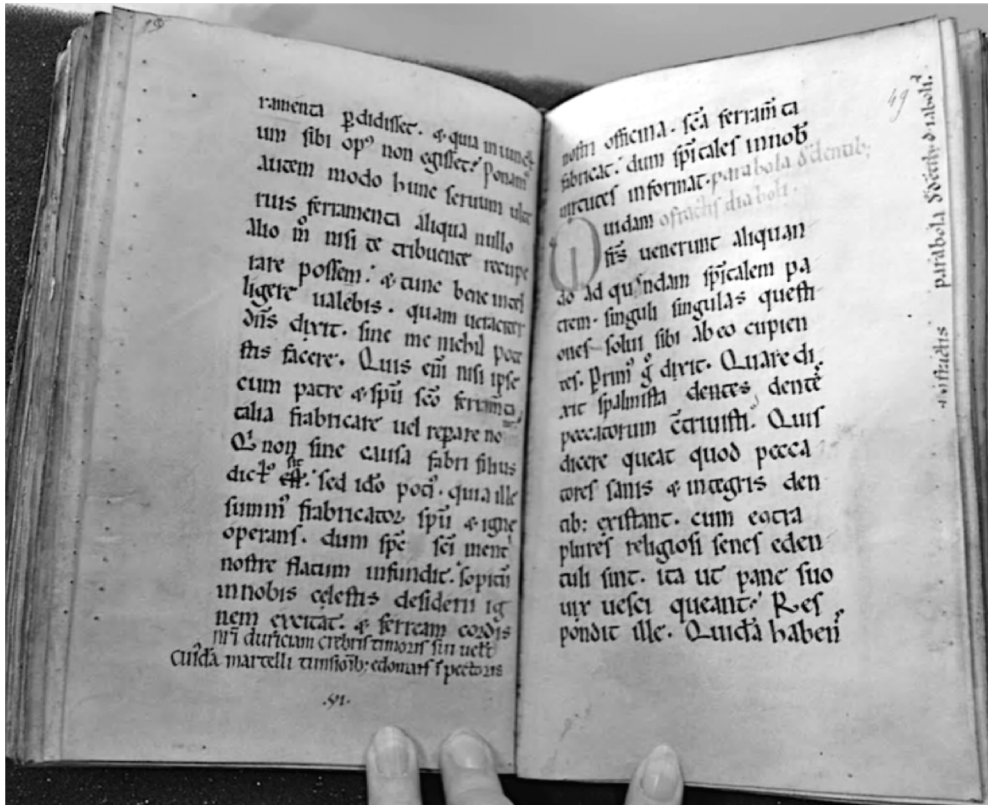 ramenta p̄didisset. & quia in uino
um sibi opꝰ non egisset? Ponamꝰ
autem modo hunc seruum
rius ferramenta aliqua nullo
alio m̊ nisi te tribuente recupe
rare possem. & tunc bene intel
ligere ualebis. quam ueraciter
dn̄s dixit. sine me nichil pote
stis facere. Quis eni̅ nisi ipse
cum patre & sp̄u sc̄o ferram̄ta
talia frabricare uel reparare
non sine causa fabri filius
dict᷒ sit est. sed id̊o quia ille
summꝰ frabricator sp̄u & igne
operans. dum sp̄c sc̄i ment᷒
nostre flatum infundit. sopitū
in nobis celestis desiderii ig
nem excitat. & ferream cordis
nr̄i duriciam crebris timoris sui uelt᷒
cuiꝰdā martelli tunsioib; edomās pectoris
.vi.
49
nostri officina. sc̄a ferram̄ta
fabricat. dum sp̄itales in nob᷒
uirtutes informat. parabola de dentib;
Quidam ofractis diaboli.
fr̄s uenerunt aliquan
do ad quendam sp̄italem pa
trem. singuli singulas questi
ones solui sibi ab eo cupien
tes. Primꝰ g̊ dixit. Quare di
xit spalmista dentes dente᷒
peccatorum c̄triuisti. Quis
dicere queat quod pecca
tores sanis & integris den
tib; existant. cum ec̄tra
plures religiosi senes eden
tuli sint. ita ut pane suo
uix uesci queant? Res
pondit ille. Quidā haben
parabola de dentib; diaboli.
confractis